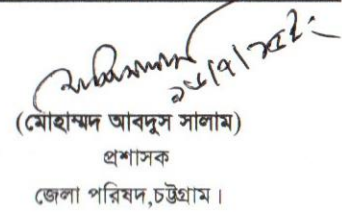 (মোহাম্মদ আবদুস সালাম)
প্রশাসক
জেলা পরিষদ,চট্টগ্রাম।